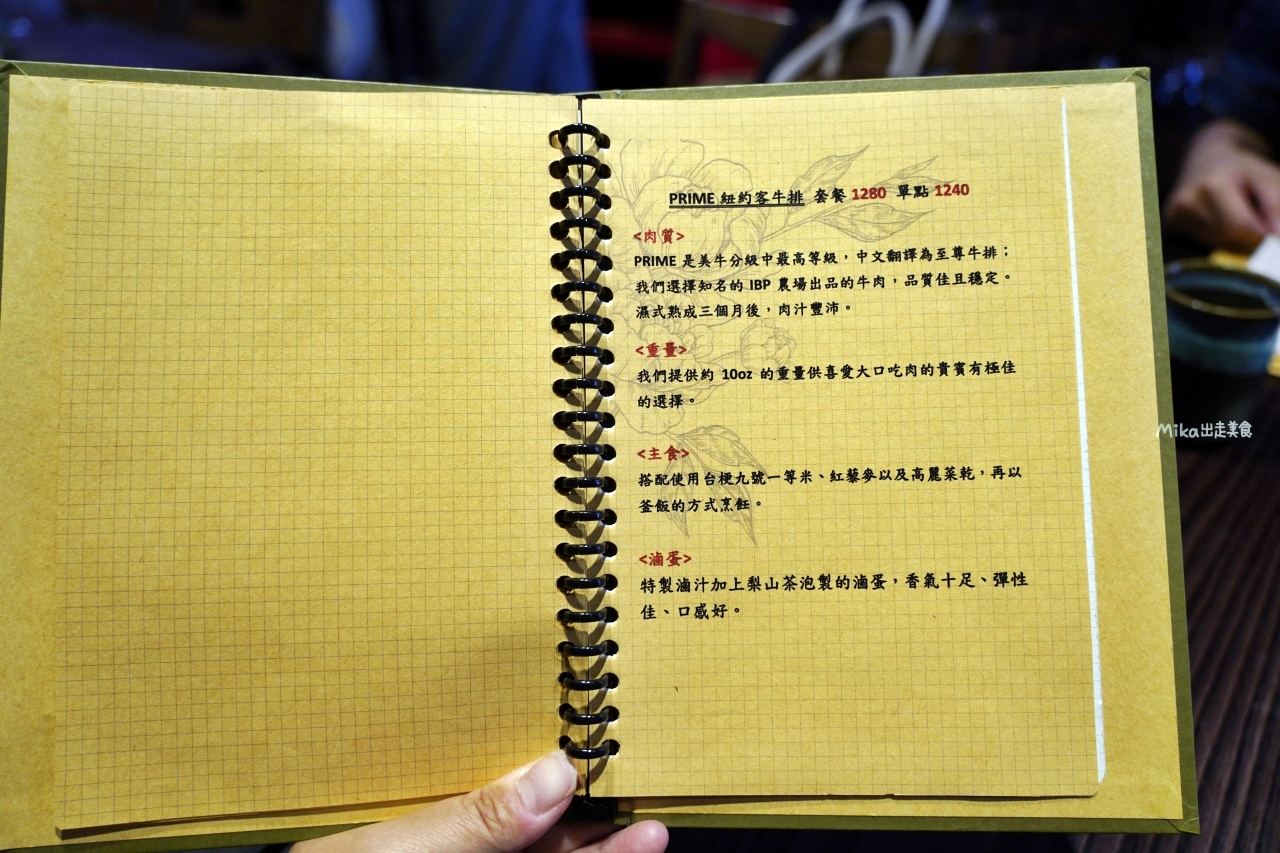 PRIME 紐約客牛排 套餐 1280 單點 1240
<肉質>
PRIME 是美牛分級中最高等級，中文翻譯為至尊牛排；
我們選擇知名的 IBP 農場出品的牛肉，品質佳且穩定。
濕式熟成三個月後，肉汁豐沛。
<重量>
我們提供約 10oz 的重量供喜愛大口吃肉的貴賓有極佳
的選擇。
<主食>
搭配使用台梗九號一等米、紅藜麥以及高麗菜乾，再以
釜飯的方式烹飪。
<滷蛋>
特製滷汁加上梨山茶泡製的滷蛋，香氣十足、彈性
佳、口感好。
Mika出走美食